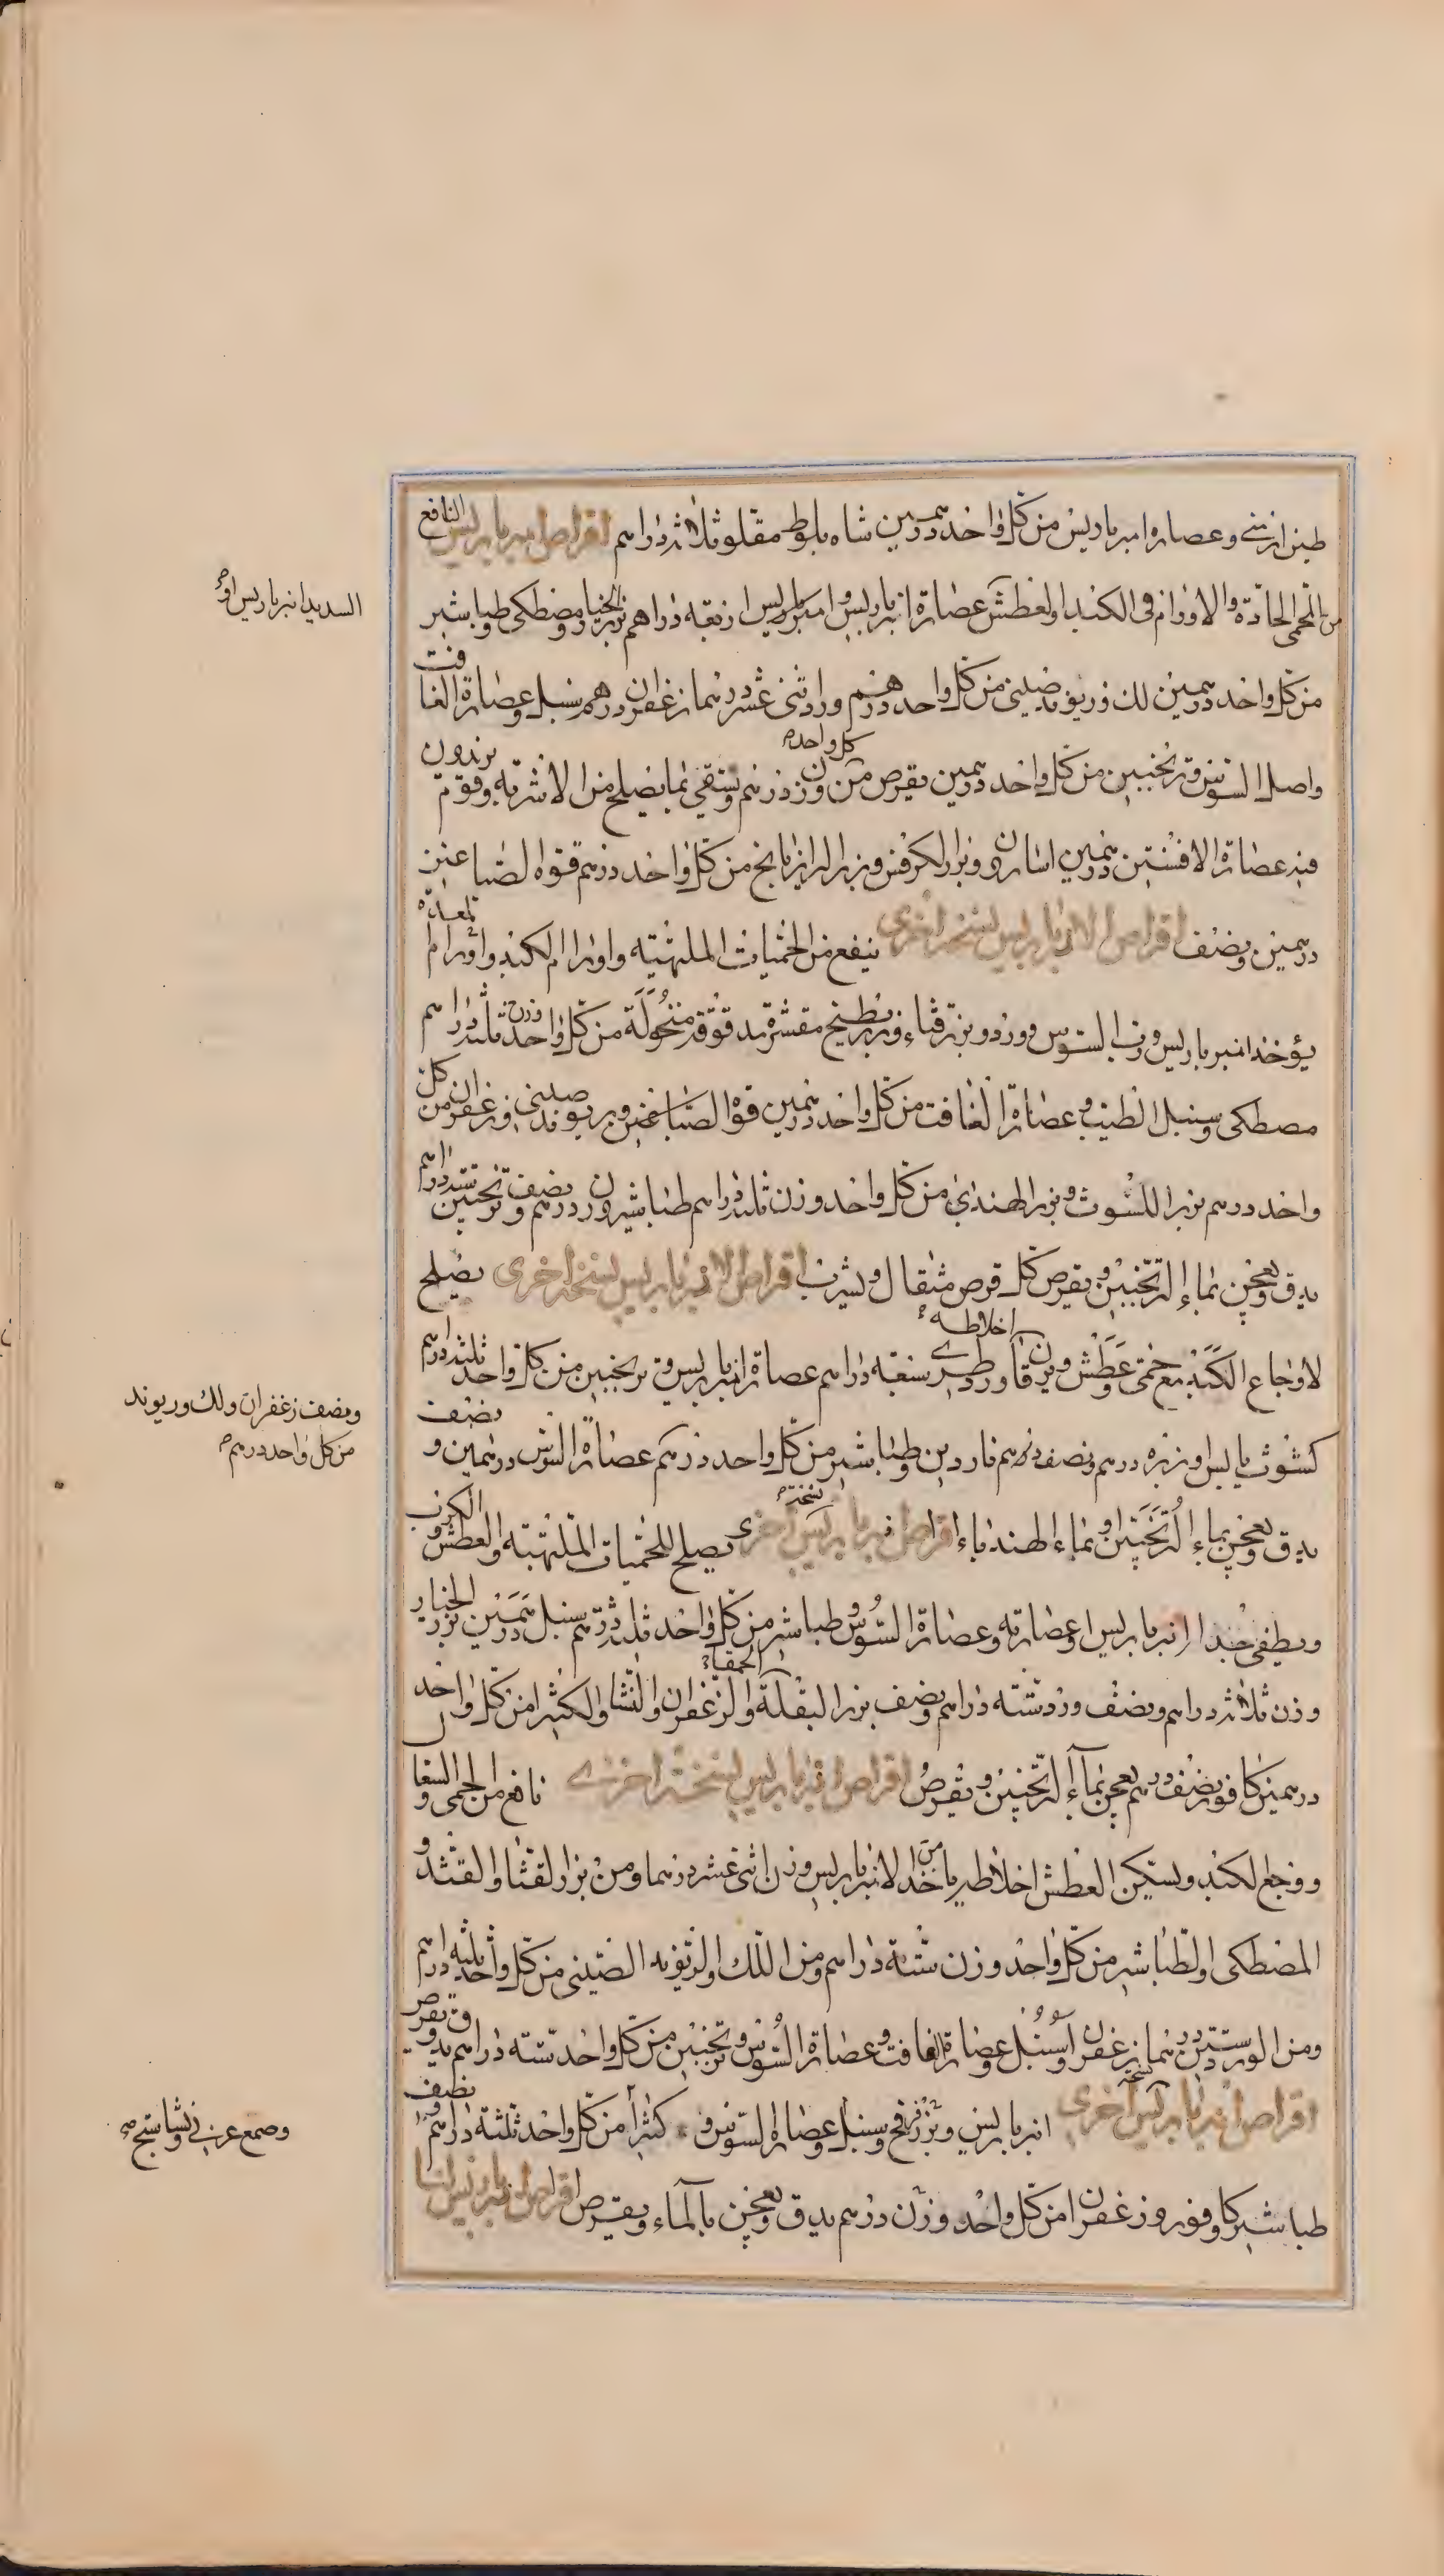 طين ارمني وعصاره امبرباريس من كل واحد درهمين شاه بلوط مقلو ثلاثة دراهم اقراص امبرباريس النافع
من الحمى الحادة والاورام في الكبد والعطش عصارة انبرباريس او امبرباريس اربعة دراهم بزر الخيار ومصطكى وطباشير
من كل واحد درهمين لك وريوند صيني من كل واحد درهم ورد اثني عشر درهما زعفران درهم سنبل وعصارة الغافت
واصل السوس وترنجبين من كل واحد درهمين يقرص من كل واحد وزن درهم ويسقى بما يصلح من الاشربة وقوم يزيدون
فيه عصارة الافسنتين درهمين اسارون وبزر الكرفس وبزر الرازيانج من كل واحد درهم فوة الصباغين
درهمين ونصف اقراص الانبرباريس نسخة اخرى ينفع من الحميات الملتهبة واورام الكبد واورام المعدة
يؤخذ امبرباريس ورب السوس وورد وبزر قثاء وبزر بطيخ مقشرة مدقوقة منخولة من كل واحد وزن ثلثة دراهم
مصطكى وسنبل الطيب وعصارة الغافت من كل واحد درهمين فوة الصباغين وريوند صيني وزعفران من كل
واحد درهم بزر الكشوث وبزر الهندبا من كل واحد وزن ثلثة دراهم طباشير وزن درهم ونصف وترنجبين ستة دراهم
يدق ويعجن بماء الترنجبين ويقرص كل قرص مثقال ويشرب اقراص الانبرباريس نسخة اخرى يصلح
لاوجاع الكبد مع حمى وعطش ويرقان اخلاطه ورد طري سبعة دراهم عصارة انبرباريس وترنجبين من كل واحد ثلثة دراهم
كشوث يابس او بزره درهم ونصف درهم ناردين وطباشير من كل واحد درهم عصارة السوس درهمين ونصف
يدق ويعجن بماء الترنجبين او بماء الهندباء اقراص انبرباريس نسخة اخرى يصلح للحميات الملتهبة والعطش والكرب
ويطفي جدا انبرباريس او عصارته وعصارة السوس وطباشير من كل واحد ثلثة دراهم سنبل درهمين بزر الخيار
وزن ثلاثة دراهم ونصف ورد ستة دراهم ونصف بزر البقلة الحمقاء والزعفران والنشا والكثيرا من كل واحد
درهمين كافور نصف درهم يعجن بماء الترنجبين ويقرص اقراص انبرباريس نسخة اخرى نافع من الحمى والسعال
ووجع الكبد ويسكن العطش اخلاطه ياخذ من الانبرباريس وزن اثني عشر درهما ومن بزر القثا والقثد و
المصطكى والطباشير من كل واحد وزن ستة دراهم ومن اللك والريوند الصيني من كل واحد ثلثة دراهم
ومن الورد ستين درهما زعفران وسنبل وعصارة الغافت وعصارة السوس وترنجبين من كل واحد ستة دراهم يدق ويقرص
اقراص انبرباريس نسخة اخرى انبرباريس وبزر فرفخ وسنبل وعصارة السوس و كثيرا من كل واحد ثلثة دراهم ونصف
طباشير كافور وزعفران من كل واحد وزن درهم يدق ويعجن بالماء ويقرص اقراص انبرباريس لنا
السديد انبرباريس او
ونصف زعفران ولك وريوند
من كل واحد درهم
وصمغ عربي ونشاستج